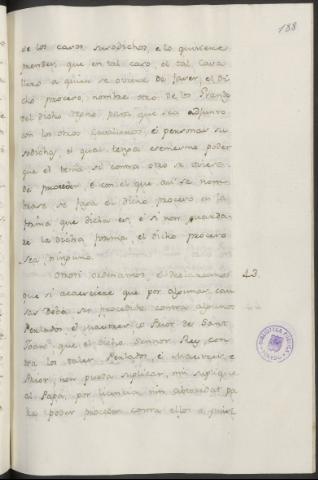 188
de los casos susodichos, e lo quisiere
prender, que en tal caso, el tal Cava-
llero a quien se oviere de facer, el di-
cho proceso, nombre otro de los Grandes
del dicho regno para que sea adjunto
con los otros Cavalleros, é personas su-
sodichas, el qual tenga ese mismo poder
que el tenia si contra otro se oviera
de proceder, é con el que assi se nom-
brare se faga el dicho proceso en la
forma que dicha es, é si non guarda-
re la dicha forma, el dicho proceso
sea ninguno.
Otrosi ordenamos, é declaramos 43.
que si acaerciere que por algunas cau-
sas deba ser procedido contra algunos
Perlados, é Maestres, o Prior de Sant
Joan que el dicho Sennor Rey, con-
tra los tales Perlados, é Maestres, e
Prior, non pueda suplicar, nin suplique
al Papa, por licencia nin abtoridat pa
ra poder proceder contra ellos a
BIBLIOTECA PUBLICA